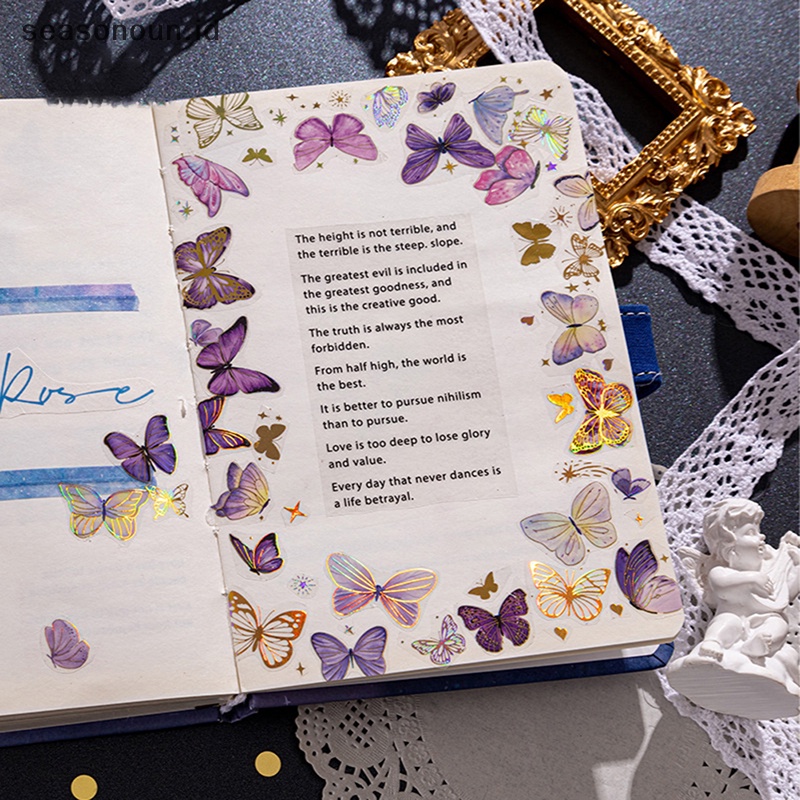 seasonoun.id
Rose
The height is not terrible, and
the terrible is the steep. slope.
The greatest evil is included in
the greatest goodness, and
this is the creative good.
The truth is always the most
forbidden.
From half high, the world is
the best.
It is better to pursue nihilism
than to pursue.
Love is too deep to lose glory
and value.
Every day that never dances is
a life betrayal.